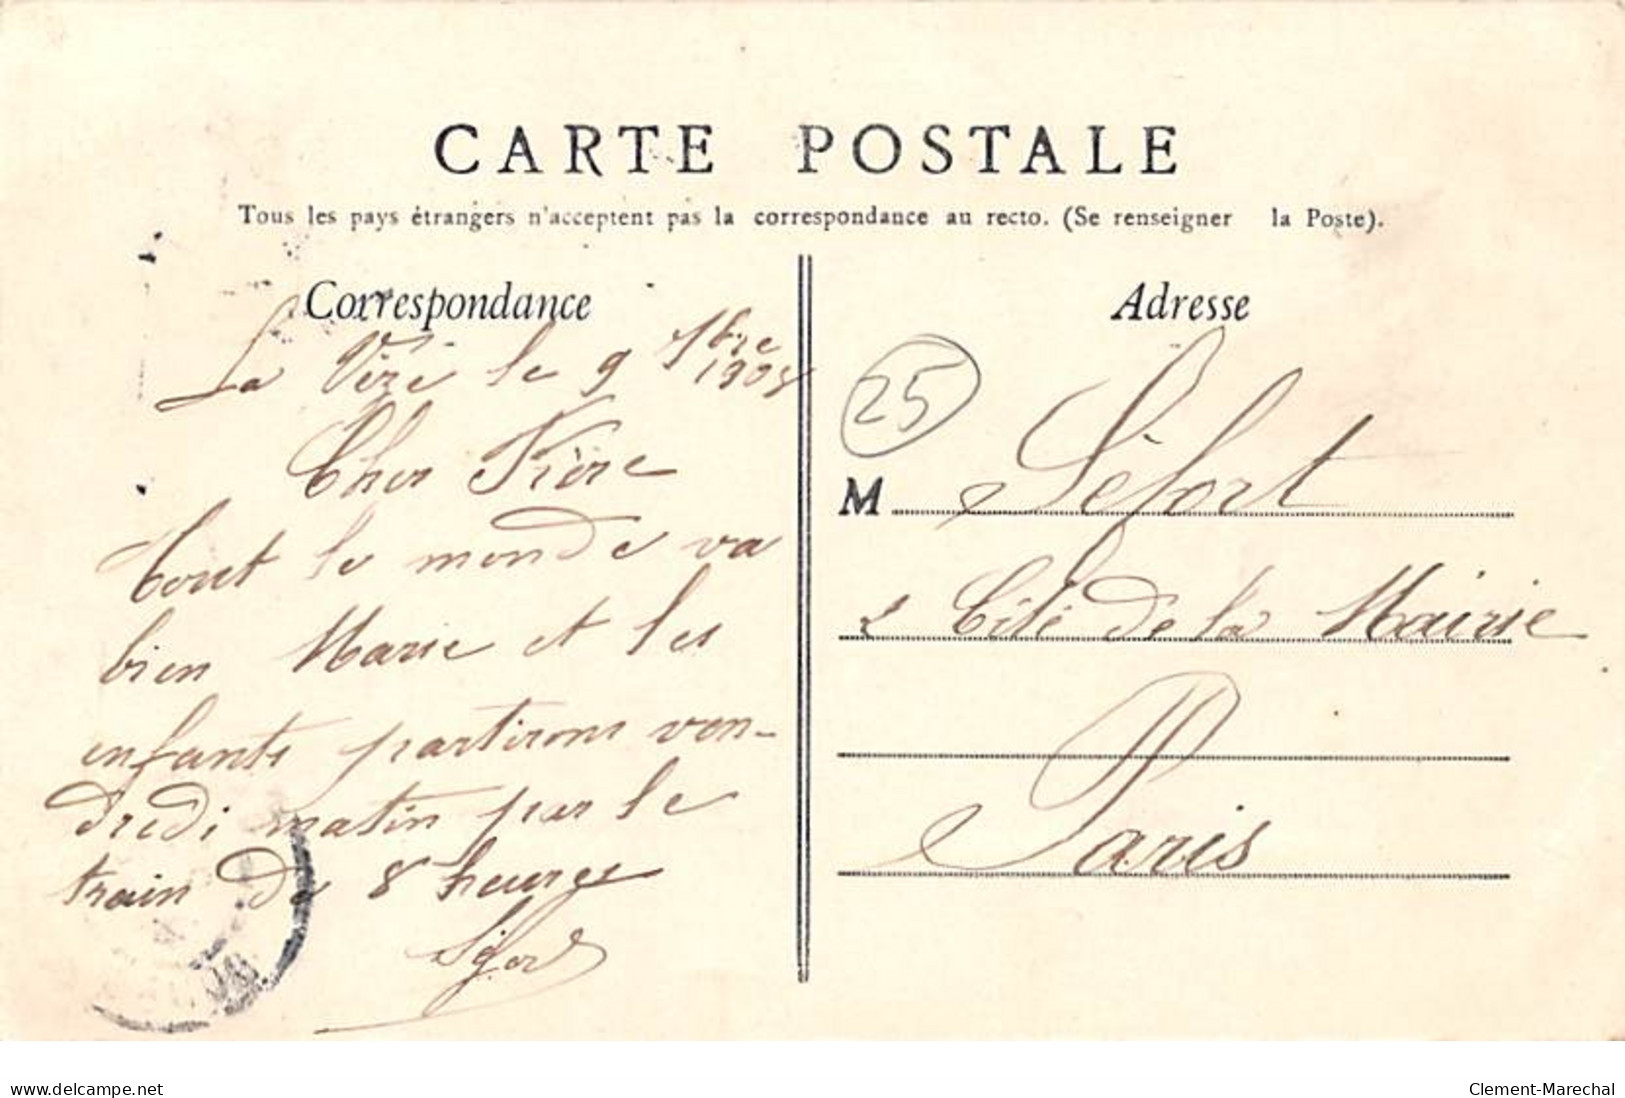 CARTE POSTALE
Tous les pays étrangers n'acceptent pas la correspondance au recto. (Se renseigner la Poste).
Correspondance
La Vèze le 9 7bre
1905
Cher Frère
tout le monde va
bien Marie et les
enfants partirons ven-
dredi matin par le
train de 8 heures
Adresse
25
M Léfort
2 Cité de la Mairie
Paris
www.delcampe.net
Clement-Marechal